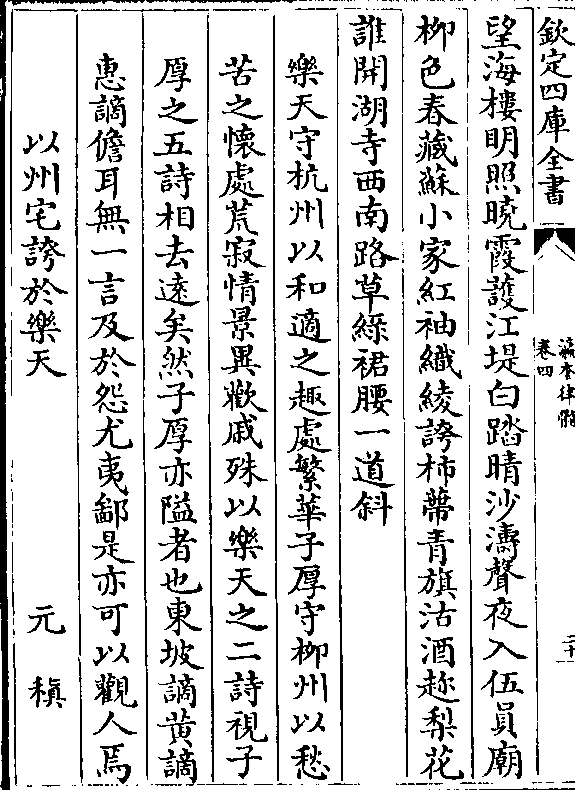 欽定四庫全書
瀛奎律髓
卷四
二十
望海樓明照曉霞護江堤白踏晴沙濤聲夜入伍員廟
柳色春藏蘇小家紅袖織綾誇柿蔕青旗沽酒趂梨花
誰開湖寺西南路草綠裙腰一道斜
樂天守杭州以和適之趣處繁華子厚守柳州以愁
苦之懷處荒寂情景異歡戚殊以樂天之二詩視子
厚之五詩相去遠矣然子厚亦隘者也東坡謫黃謫
惠謫儋耳無一言及於怨尤夷鄙是亦可以觀人焉
以州宅誇於樂天　元稹